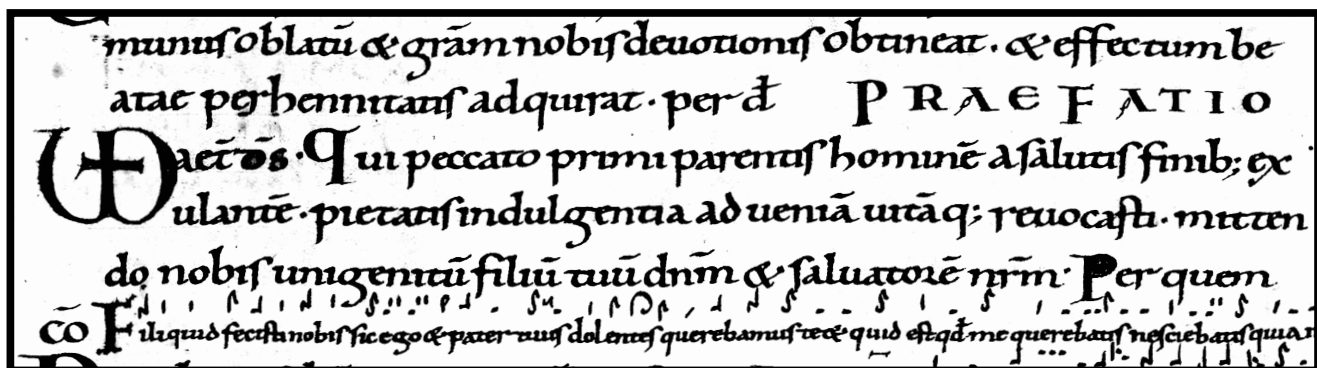 munus oblatū & grām nobis deuotionis obtineat. & effectum be
atae perhennitatis adquirat. per đ PRAEFATIO
VD aet̄ ds̄. Qui peccato primi parentis hominē a salutis finib; ex
ulantē. pietatis indulgentia ad ueniā uitāq; reuocasti. mitten
do nobis unigenitū filiū tuū dn̄m & saluatorē nr̄m. Per quem
cō Fili quid fecisti nobis sic ego & pater tuus dolentes querebamus te & quid est qđ me querebatis nesciebatis quia